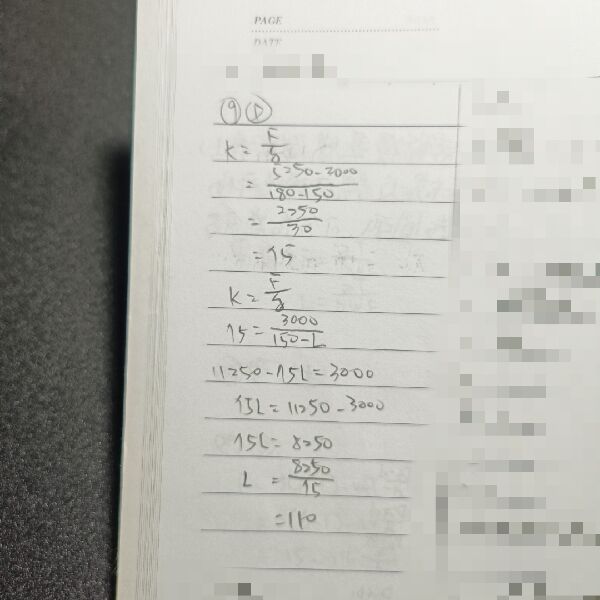 PAGE
DATE
⑨ Ⓓ
K = F/δ
= 5250-3000/180-150
= 2250/30
= 75
K = F/δ
75 = 3000/150-L
11250-75L = 3000
75L = 11250-3000
75L = 8250
L = 8250/75
= 110